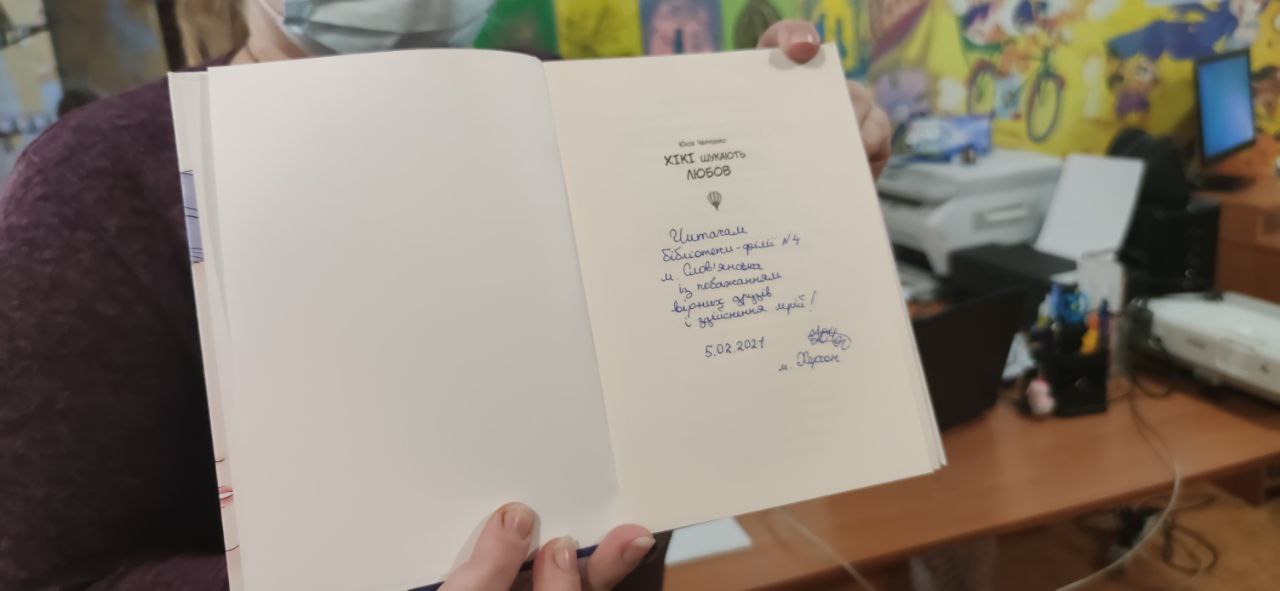 Юлія Чернієнко
ХІКІ ШУКАЮТЬ
ЛЮБОВ
Читачам
бібліотеки-філії №4
м. Слов'янська
із побажанням
вірних друзів
і здійснення мрій!
5.02.2021
м. Херсон